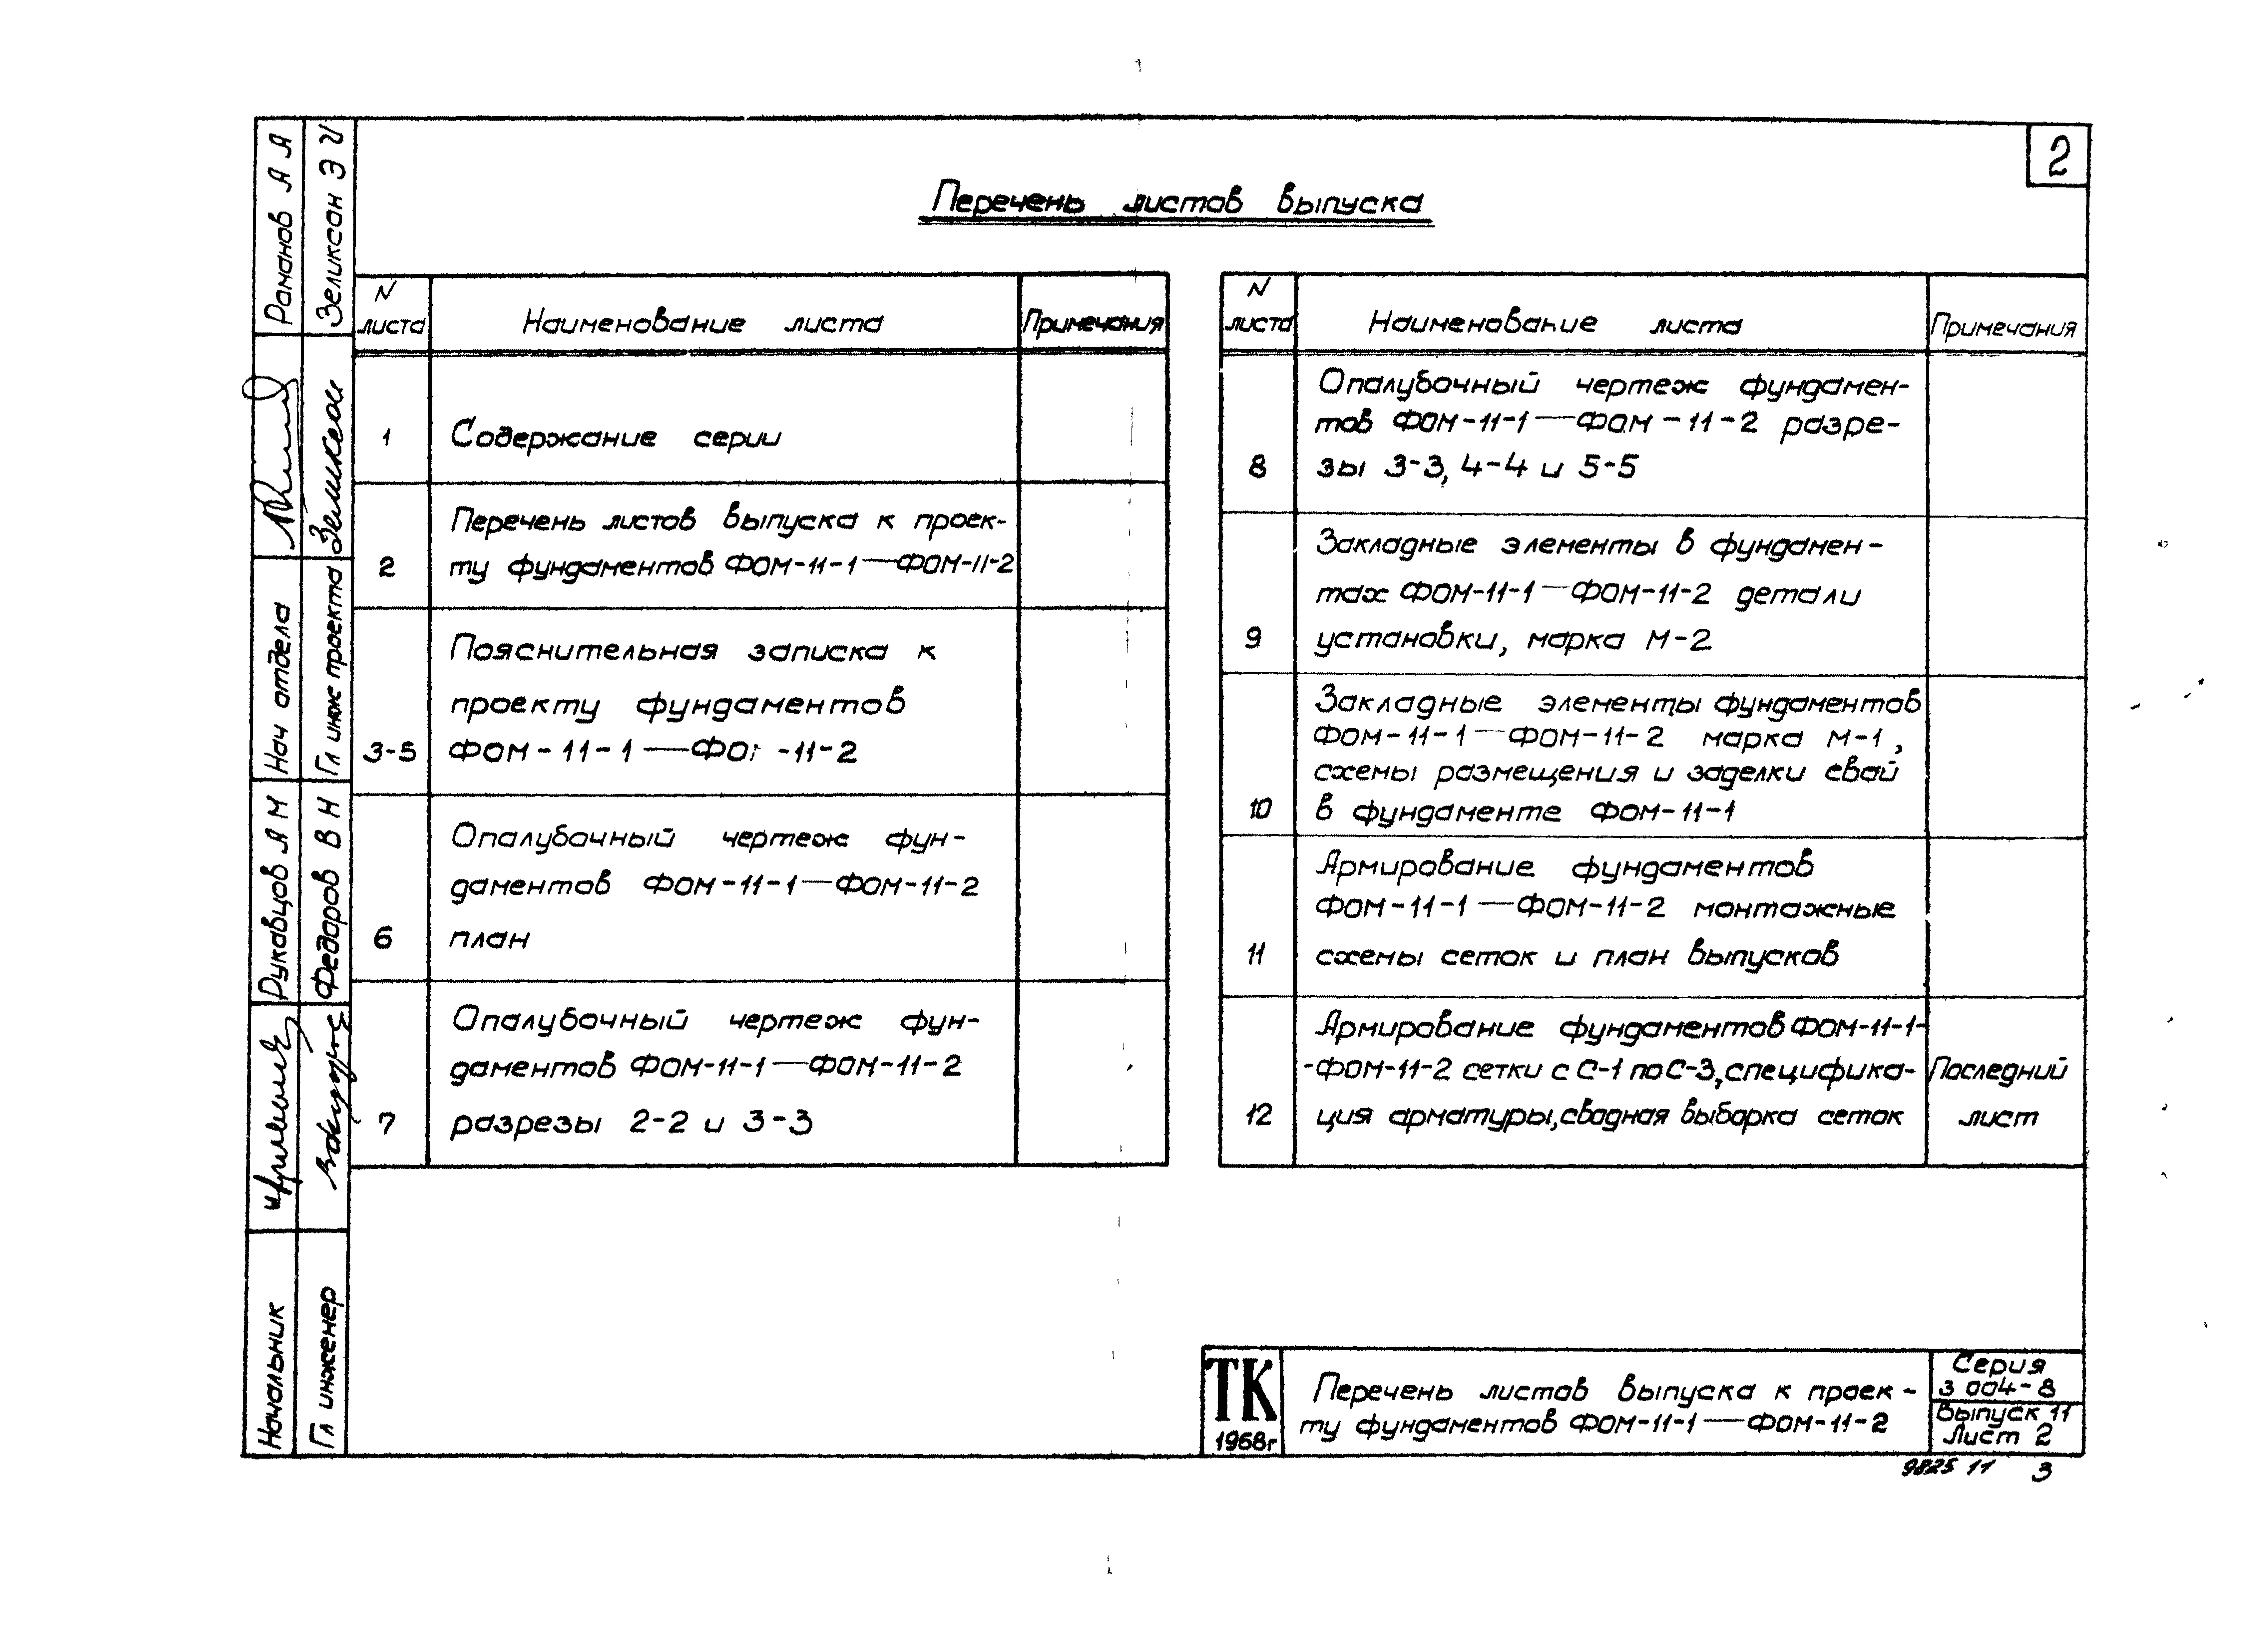 2
Перечень листов выпуска
N листа Наименование листа Примечания
1 Содержание серии
Перечень листов выпуска к проек-
2 ту фундаментов ФОМ-11-1—ФОМ-11-2
Пояснительная записка к
проекту фундаментов
3-5 ФОМ-11-1—ФО -11-2
Опалубочный чертеж фун-
даментов ФОМ-11-1—ФОМ-11-2
6 план
Опалубочный чертеж фун-
даментов ФОМ-11-1—ФОМ-11-2
7 разрезы 2-2 и 3-3
N листа Наименование листа Примечания
Опалубочный чертеж фундамен-
тов ФОМ-11-1—ФОМ-11-2 разре-
8 зы 3-3, 4-4 и 5-5
Закладные элементы в фундамен-
тах ФОМ-11-1—ФОМ-11-2 детали
9 установки, марка М-2
Закладные элементы фундаментов
ФОМ-11-1—ФОМ-11-2 марка М-1,
схемы размещения и заделки свай
10 в фундаменте ФОМ-11-1
Армирование фундаментов
ФОМ-11-1—ФОМ-11-2 монтажные
11 схемы сеток и план выпусков
Армирование фундаментов ФОМ-11-1-
-ФОМ-11-2 сетки с С-1 по С-3, специфика- Последний
12 ция арматуры, сводная выборка сеток лист
Начальник Рукавцов А М Нач отдела Романов А А
Гл инженер Федоров В Н Гл инж проекта Зеликсон Э И
ТК
1968г
Перечень листов выпуска к проек-
ту фундаментов ФОМ-11-1—ФОМ-11-2
Серия
3 004-8
Выпуск 11
Лист 2
9825 11 3